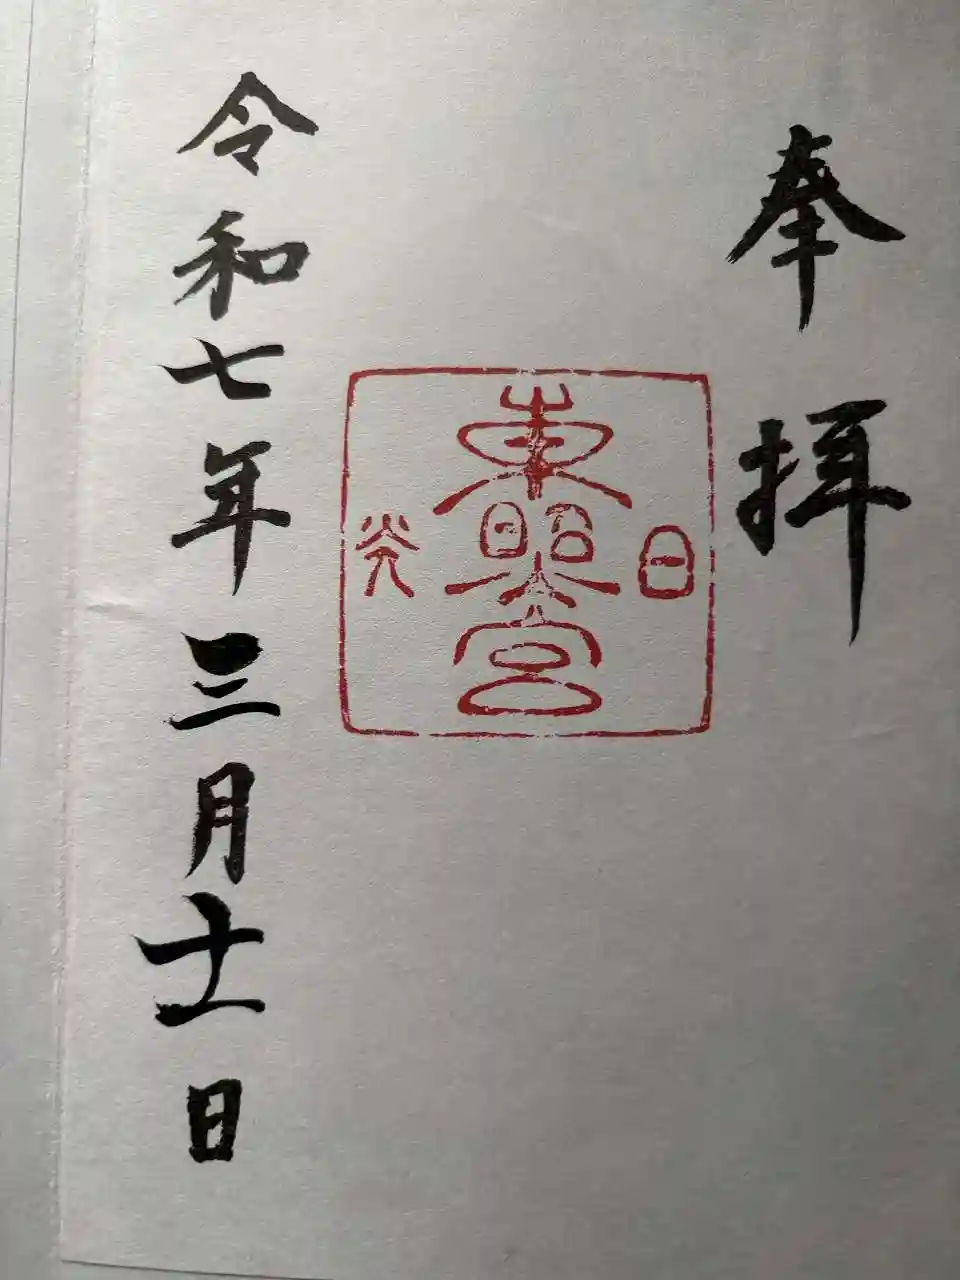 奉拝
日光
東照宮
令和七年三月十一日